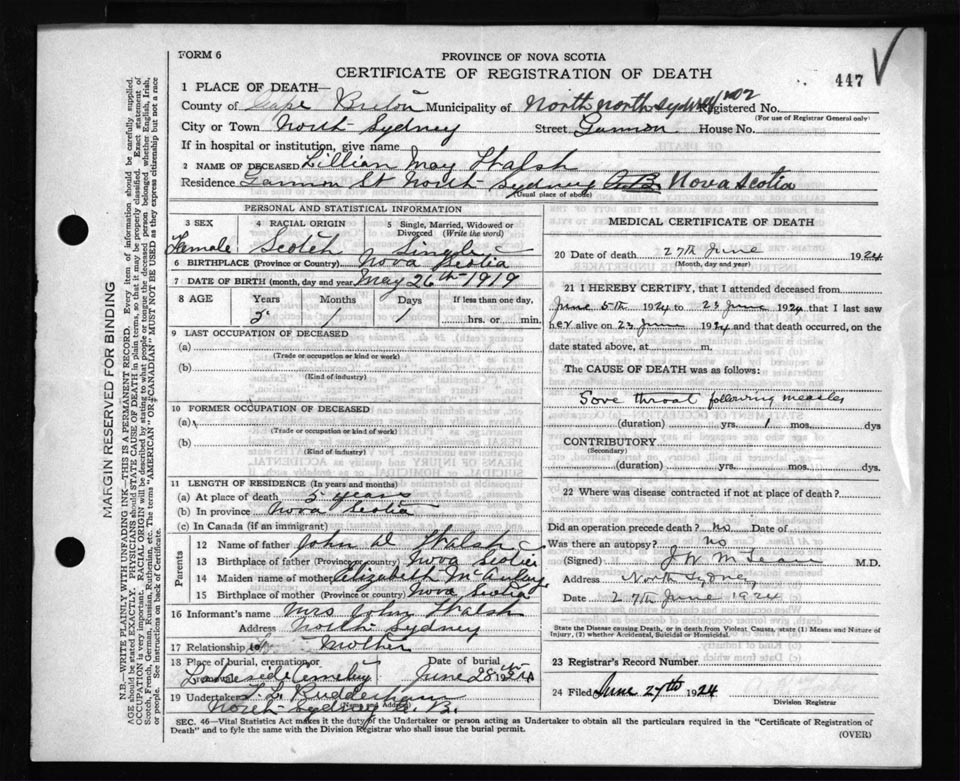 FORM 6
PROVINCE OF NOVA SCOTIA
CERTIFICATE OF REGISTRATION OF DEATH
447
1 PLACE OF DEATH—
County of Cape Breton Municipality of North North Sydney 102 Registered No.
(For use of Registrar General only)
City or Town North Sydney Street Gannon House No.
If in hospital or institution, give name
2 NAME OF DECEASED Lillian May Walsh
Residence Gannon St North Sydney C.B. Nova Scotia
(Usual place of abode)
PERSONAL AND STATISTICAL INFORMATION
3 SEX 4 RACIAL ORIGIN 5 Single, Married, Widowed or Divorced (Write the word)
Female Scotch Single
6 BIRTHPLACE (Province or Country) Nova Scotia
7 DATE OF BIRTH (month, day and year) May 26th 1919
8 AGE Years Months Days If less than one day,
5 1 1 hrs. or min.
9 LAST OCCUPATION OF DECEASED
(a)
(Trade or occupation or kind or work)
(b)
(Kind of industry)
10 FORMER OCCUPATION OF DECEASED
(a)
(Trade or occupation or kind of work)
(b)
(Kind of industry)
11 LENGTH OF RESIDENCE (In years and months)
(a) At place of death 5 years
(b) In province Nova Scotia
(c) In Canada (if an immigrant)
Parents
12 Name of father John D Walsh
13 Birthplace of father (Province or country) Nova Scotia
14 Maiden name of mother Elizabeth
15 Birthplace of mother (Province or country) Nova Scotia
16 Informant's name Mrs John Walsh
Address North Sydney
17 Relationship Mother
18 Place of burial, cremation or Date of burial
Lakeside Cemetery June 28th 1924
19 Undertaker L. L. Rudderham
(Name and Address)
North Sydney C. B.
MEDICAL CERTIFICATE OF DEATH
20 Date of death 27th June 1924
(Month, day and year)
21 I HEREBY CERTIFY, that I attended deceased from
June 5th 1924 to 23 June 1924 that I last saw
her alive on 23 June 1924 and that death occurred, on the
date stated above, at m.
The CAUSE OF DEATH was as follows:
Sore throat following measles
(duration) yrs. 1 mos. dys
CONTRIBUTORY
(Secondary)
(duration) yrs. mos. dys.
22 Where was disease contracted if not at place of death?
Did an operation precede death? no Date of
Was there an autopsy? no
(Signed) J W McLean M.D.
Address North Sydney
Date 27th June 1924
State the Disease causing Death, or in death from Violent Causes, state (1) Means and Nature of
Injury, (2) whether Accidental, Suicidal or Homicidal.
23 Registrar's Record Number
24 Filed June 27th 1924
Division Registrar
SEC. 46—Vital Statistics Act makes it the duty of the Undertaker or person acting as Undertaker to obtain all the particulars required in the "Certificate of Registration of
Death" and to fyle the same with the Division Registrar who shall issue the burial permit.
(OVER)
MARGIN RESERVED FOR BINDING
N.B.—WRITE PLAINLY WITH UNFADING INK—THIS IS A PERMANENT RECORD. Every item of information should be carefully supplied.
AGE should be stated EXACTLY. PHYSICIANS should STATE CAUSE OF DEATH in plain terms, so that it may be properly classified. Exact statement of
OCCUPATION is very important. RACIAL ORIGIN will be described by stating to what people or race the deceased person belonged whether English, Irish,
Scotch, French, German, Russian, Ruthenian, etc. The terms "AMERICAN" OR "CANADIAN" MUST NOT BE USED as they express citizenship but not a race
or people. See instructions on back of Certificate.